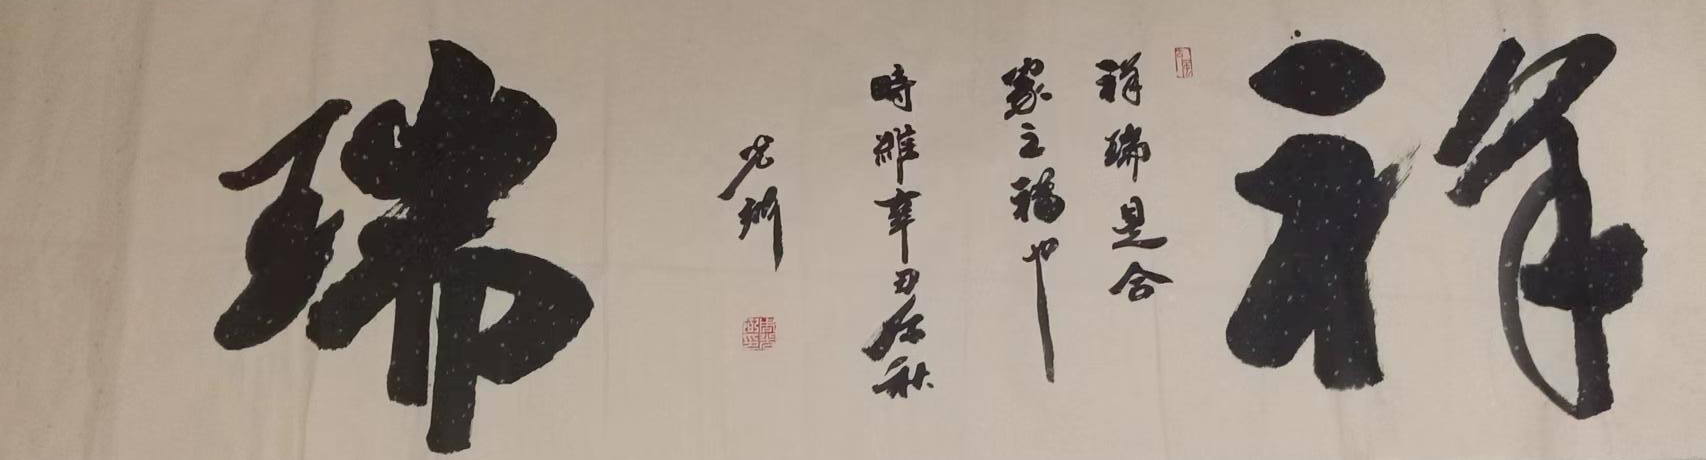 祥瑞
祥瑞是合
家之福也
時維辛丑仲秋